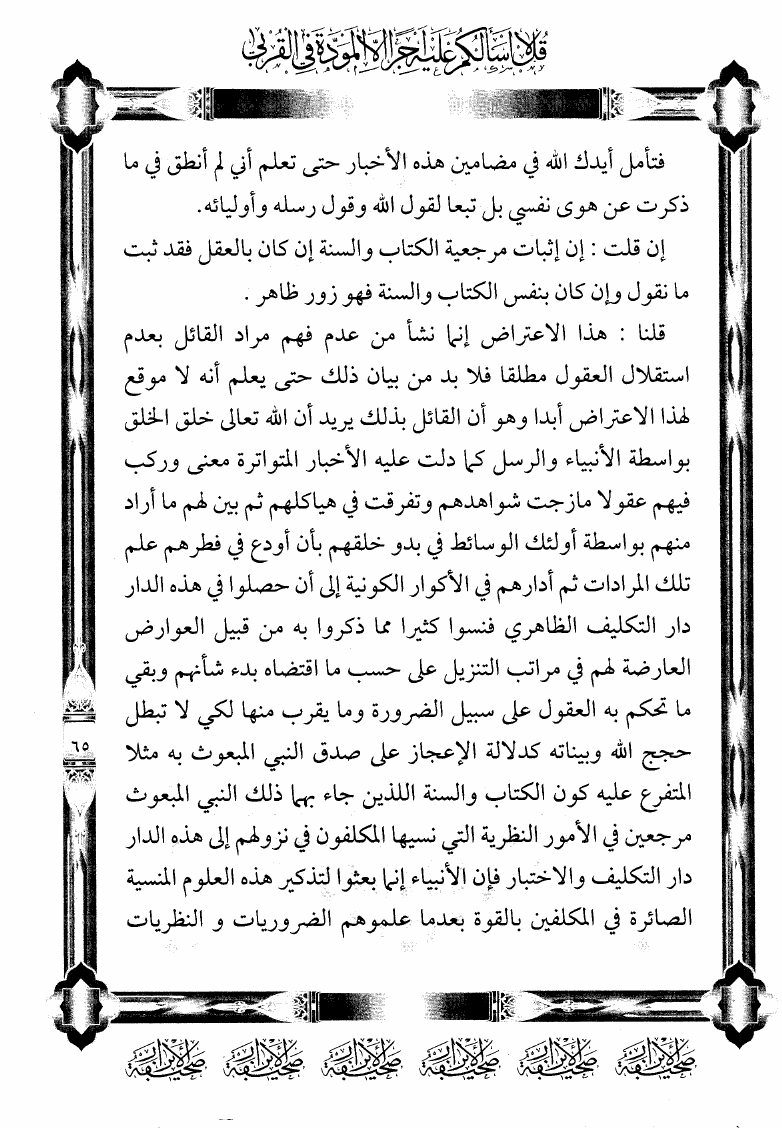 قل لا أسألكم عليه أجرا إلا المودة في القربى
فتأمل أيدك الله في مضامين هذه الأخبار حتى تعلم أني لم أنطق في ما
ذكرت عن هوى نفسي بل تبعا لقول الله وقول رسله وأوليائه.
إن قلت : إن إثبات مرجعية الكتاب والسنة إن كان بالعقل فقد ثبت
ما نقول وإن كان بنفس الكتاب والسنة فهو زور ظاهر .
قلنا : هذا الاعتراض إنما نشأ من عدم فهم مراد القائل بعدم
استقلال العقول مطلقا فلا بد من بيان ذلك حتى يعلم أنه لا موقع
لهذا الاعتراض أبدا وهو أن القائل بذلك يريد أن الله تعالى خلق الخلق
بواسطة الأنبياء والرسل كما دلت عليه الأخبار المتواترة معنى وركب
فيهم عقولا مازجت شواهدهم وتفرقت في هياكلهم ثم بين لهم ما أراد
منهم بواسطة أولئك الوسائط في بدو خلقهم بأن أودع في فطرهم علم
تلك المرادات ثم أدارهم في الأكوار الكونية إلى أن حصلوا في هذه الدار
دار التكليف الظاهري فنسوا كثيرا مما ذكروا به من قبيل العوارض
العارضة لهم في مراتب التنزيل على حسب ما اقتضاه بدء شأنهم وبقي
ما تحكم به العقول على سبيل الضرورة وما يقرب منها لكي لا تبطل
حجج الله وبيناته كدلالة الإعجاز على صدق النبي المبعوث به مثلا
المتفرع عليه كون الكتاب والسنة اللذين جاء بهما ذلك النبي المبعوث
مرجعين في الأمور النظرية التي نسيها المكلفون في نزولهم إلى هذه الدار
دار التكليف والاختبار فإن الأنبياء إنما بعثوا لتذكير هذه العلوم المنسية
الصائرة في المكلفين بالقوة بعدما علموهم الضروريات و النظريات
٦٥
صحيفة الأبرار صحيفة الأبرار صحيفة الأبرار صحيفة الأبرار صحيفة الأبرار صحيفة الأبرار